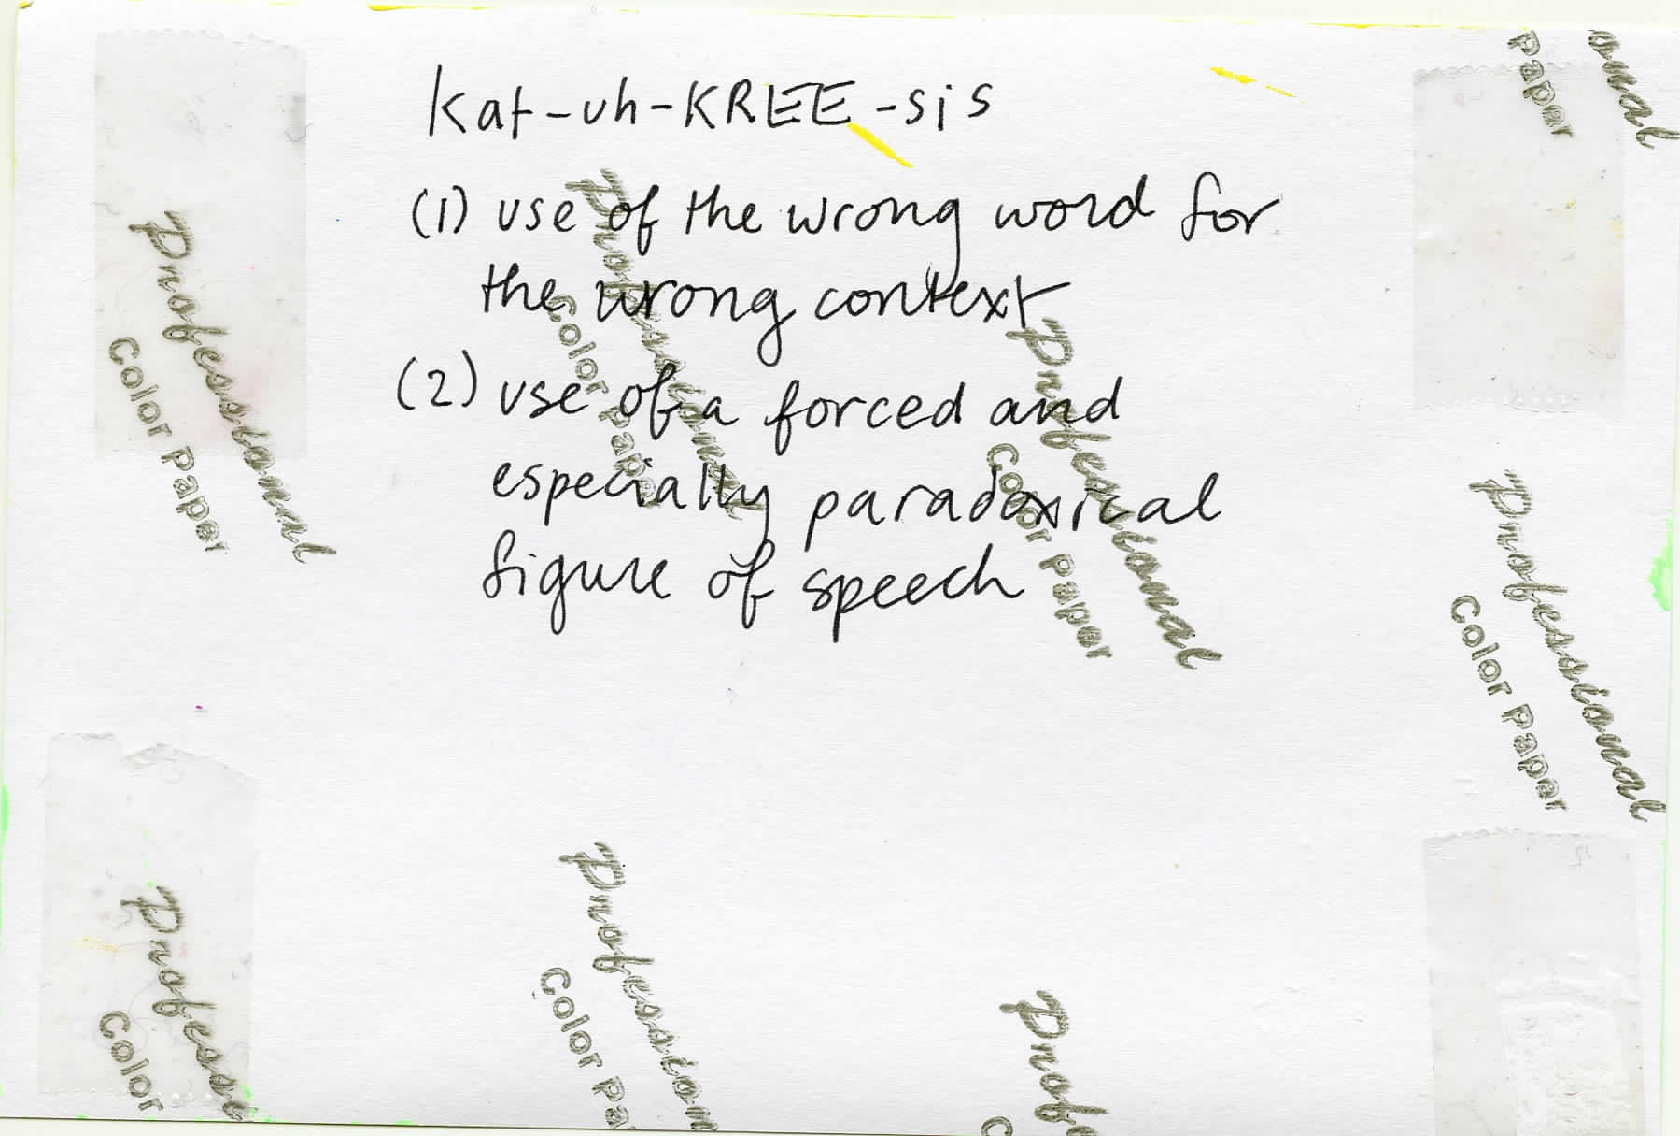 kat-uh-KREE-sis
(1) use of the wrong word for
the wrong context
(2) use of a forced and
especially paradoxical
figure of speech
onal
Paper
Professional
Color Paper
Professional
Color Paper
Professional
Color Paper
Professional
Color Paper
Professi
Color
Profession
Color Pa
Prof
C